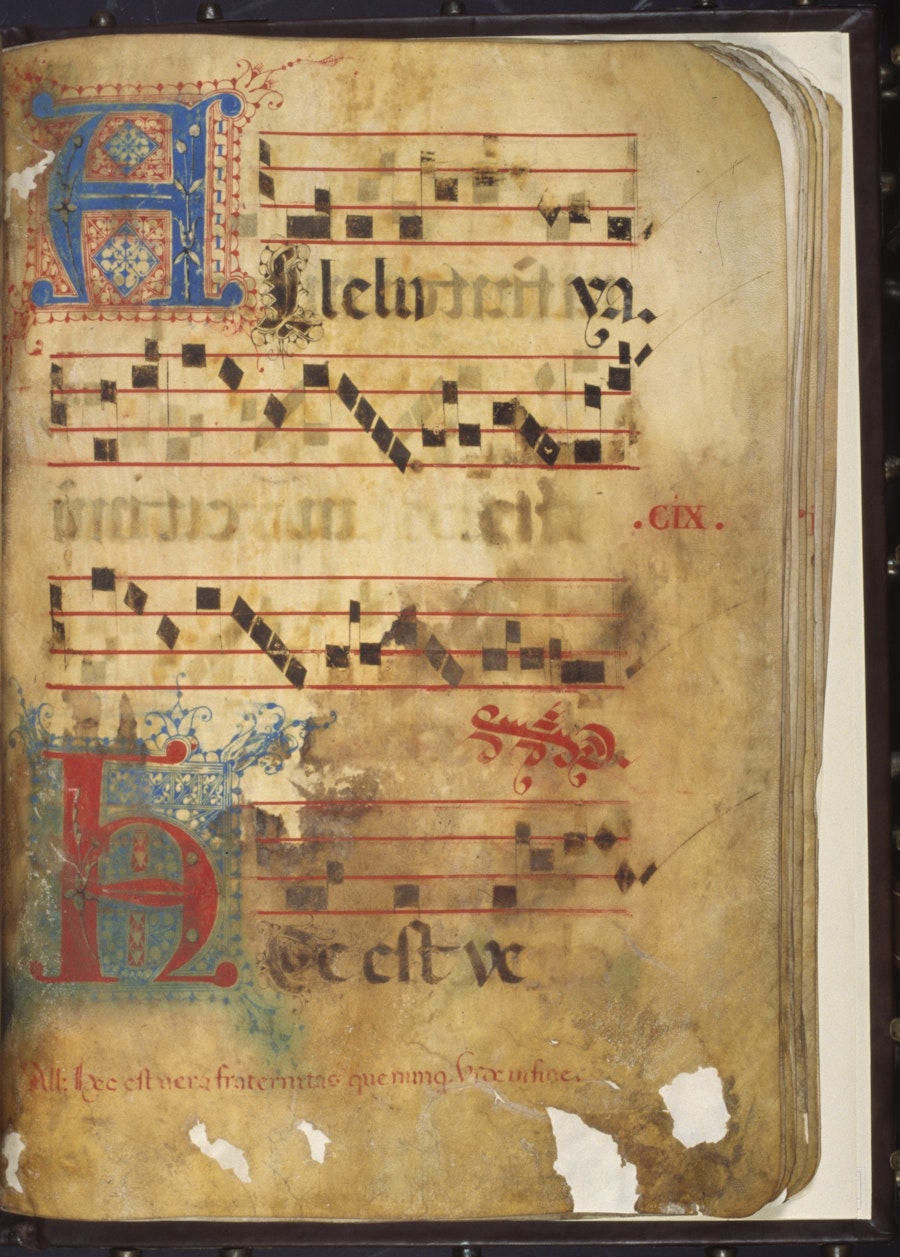 Alleluya.
.CIX.
Hec est ve
All: Hec est vera fraternitas que nunq